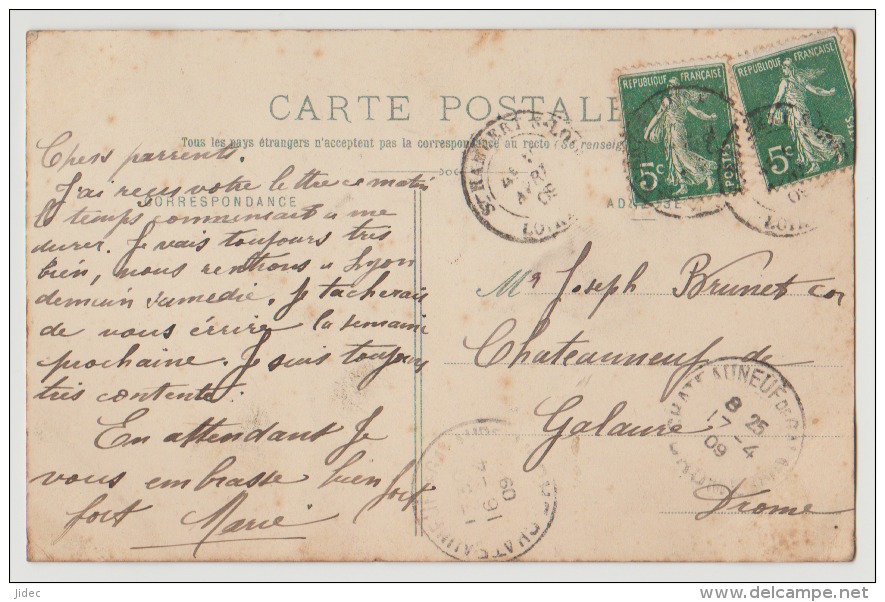 CARTE POSTALE
Tous les pays étrangers n'acceptent pas la correspondance au recto (Se renseign
CORRESPONDANCE
Chers parrents.
J'ai reçus votre lettre ce matin
le temps commensait a me
durer. Je vais toujours tres
bien, nous rentrons a Lyon
demain samedie. Je tacherais
de vous écrire la semaine
prochaine. Je suis toujours
très contente.
En attendant Je
vous embrasse bien fort
fort Marie
REPUBLIQUE FRANÇAISE
5c
POSTES
REPUBLIQUE FRANÇAISE
5c
ST RAMBERT
LOIRE
Mr Joseph Brunet
Chateauneuf de
Galaure
Drome
CHATEAUNEUF DE
8 25
17-4
09
16-4
09
jidec
www.delcampe.net